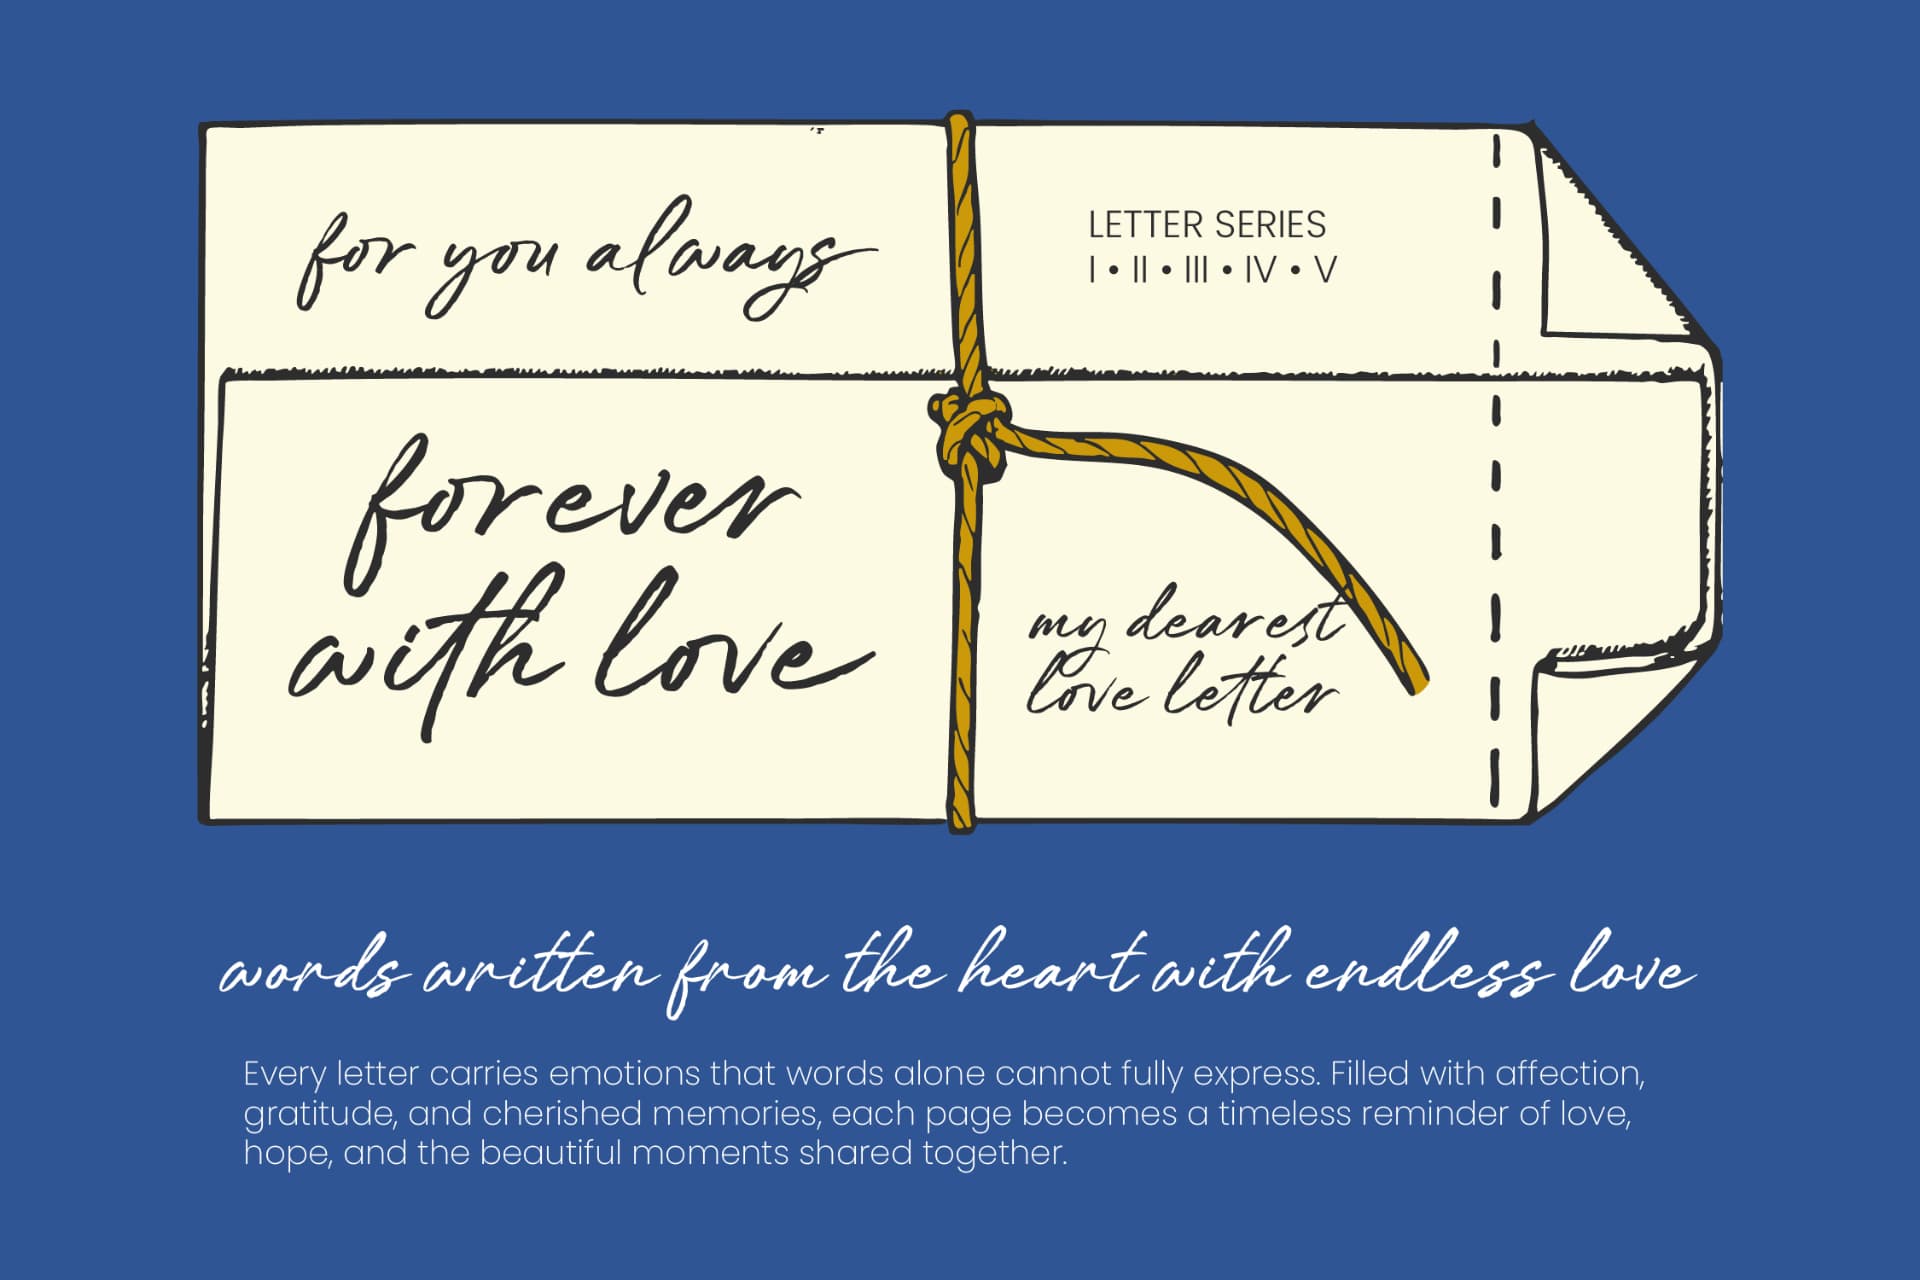 for you always
LETTER SERIES
I • II • III • IV • V
forever
with love
my dearest
love letter
words written from the heart with endless love
Every letter carries emotions that words alone cannot fully express. Filled with affection,
gratitude, and cherished memories, each page becomes a timeless reminder of love,
hope, and the beautiful moments shared together.